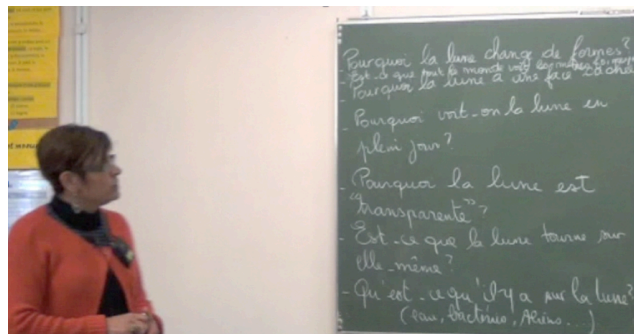 Pourquoi la lune change de formes?
- Est-ce que tout le monde voit les mêmes
- Pourquoi la lune a une face cachée
- Pourquoi voit-on la lune en
plein jour?
- Pourquoi la lune est
"transparente"?
- Est-ce que la lune tourne sur
elle-même?
- Qu'est-ce qu'il y a sur la lune?
(eau, bactéries, Aliens...)